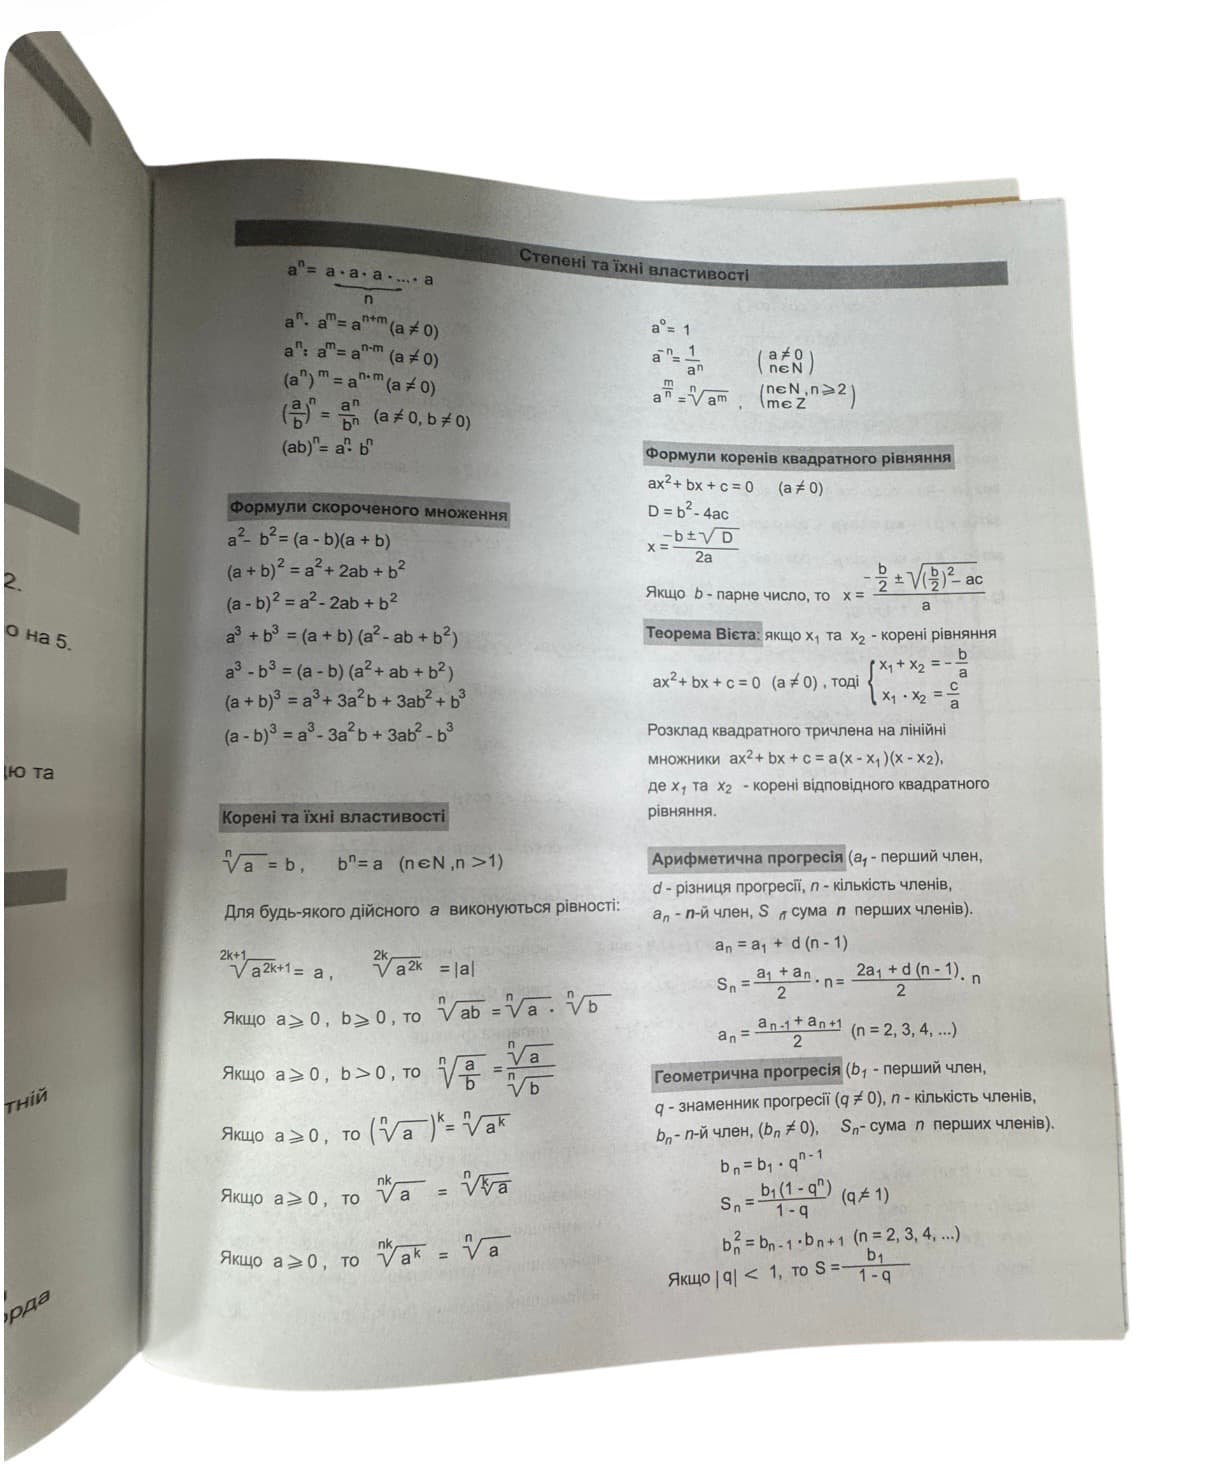 2.
о на 5.
цю та
тній
орда
Степені та їхні властивості
aⁿ = a · a · a · ... · a
n
aⁿ · aᵐ = aⁿ⁺ᵐ (a ≠ 0)
aⁿ : aᵐ = aⁿ⁻ᵐ (a ≠ 0)
(aⁿ)ᵐ = aⁿ·ᵐ (a ≠ 0)
(a/b)ⁿ = aⁿ/bⁿ (a ≠ 0, b ≠ 0)
(ab)ⁿ = aⁿ · bⁿ
Формули скороченого множення
a² - b² = (a - b)(a + b)
(a + b)² = a² + 2ab + b²
(a - b)² = a² - 2ab + b²
a³ + b³ = (a + b) (a² - ab + b²)
a³ - b³ = (a - b) (a² + ab + b²)
(a + b)³ = a³ + 3a²b + 3ab² + b³
(a - b)³ = a³ - 3a²b + 3ab² - b³
Корені та їхні властивості
ⁿ√a = b, bⁿ = a (n∈N, n > 1)
Для будь-якого дійсного a виконуються рівності:
²ᵏ⁺¹√a²ᵏ⁺¹ = a, ²ᵏ√a²ᵏ = |a|
Якщо a ⩾ 0, b ⩾ 0, то ⁿ√ab = ⁿ√a · ⁿ√b
Якщо a ⩾ 0, b > 0, то ⁿ√(a/b) = ⁿ√a / ⁿ√b
Якщо a ⩾ 0, то (ⁿ√a)ᵏ = ⁿ√aᵏ
Якщо a ⩾ 0, то ⁿᵏ√a = ⁿ√ᵏ√a
Якщо a ⩾ 0, то ⁿᵏ√aᵏ = ⁿ√a
a⁰ = 1
a⁻ⁿ = 1/aⁿ (a ≠ 0 n∈N)
a^(m/n) = ⁿ√aᵐ, (n∈N, n ⩾ 2 m∈Z)
Формули коренів квадратного рівняння
ax² + bx + c = 0 (a ≠ 0)
D = b² - 4ac
x = (-b ± √D) / 2a
Якщо b - парне число, то x = (-b/2 ± √((b/2)² - ac)) / a
Теорема Вієта: якщо x₁ та x₂ - корені рівняння
ax² + bx + c = 0 (a ≠ 0), тоді { x₁ + x₂ = -b/a
x₁ · x₂ = c/a
Розклад квадратного тричлена на лінійні
множники ax² + bx + c = a(x - x₁)(x - x₂),
де x₁ та x₂ - корені відповідного квадратного
рівняння.
Арифметична прогресія (a₁ - перший член,
d - різниця прогресії, n - кількість членів,
aₙ - n-й член, S ₙ- сума n перших членів).
aₙ = a₁ + d (n - 1)
Sₙ = (a₁ + aₙ)/2 · n = (2a₁ + d (n - 1))/2 · n
aₙ = (aₙ₋₁ + aₙ₊₁)/2 (n = 2, 3, 4, ...)
Геометрична прогресія (b₁ - перший член,
q - знаменник прогресії (q ≠ 0), n - кількість членів,
bₙ - n-й член, (bₙ ≠ 0), Sₙ- сума n перших членів).
bₙ = b₁ · qⁿ⁻¹
Sₙ = b₁(1 - qⁿ) / (1 - q) (q ≠ 1)
bₙ² = bₙ₋₁ · bₙ₊₁ (n = 2, 3, 4, ...)
Якщо |q| < 1, то S = b₁ / (1 - q)